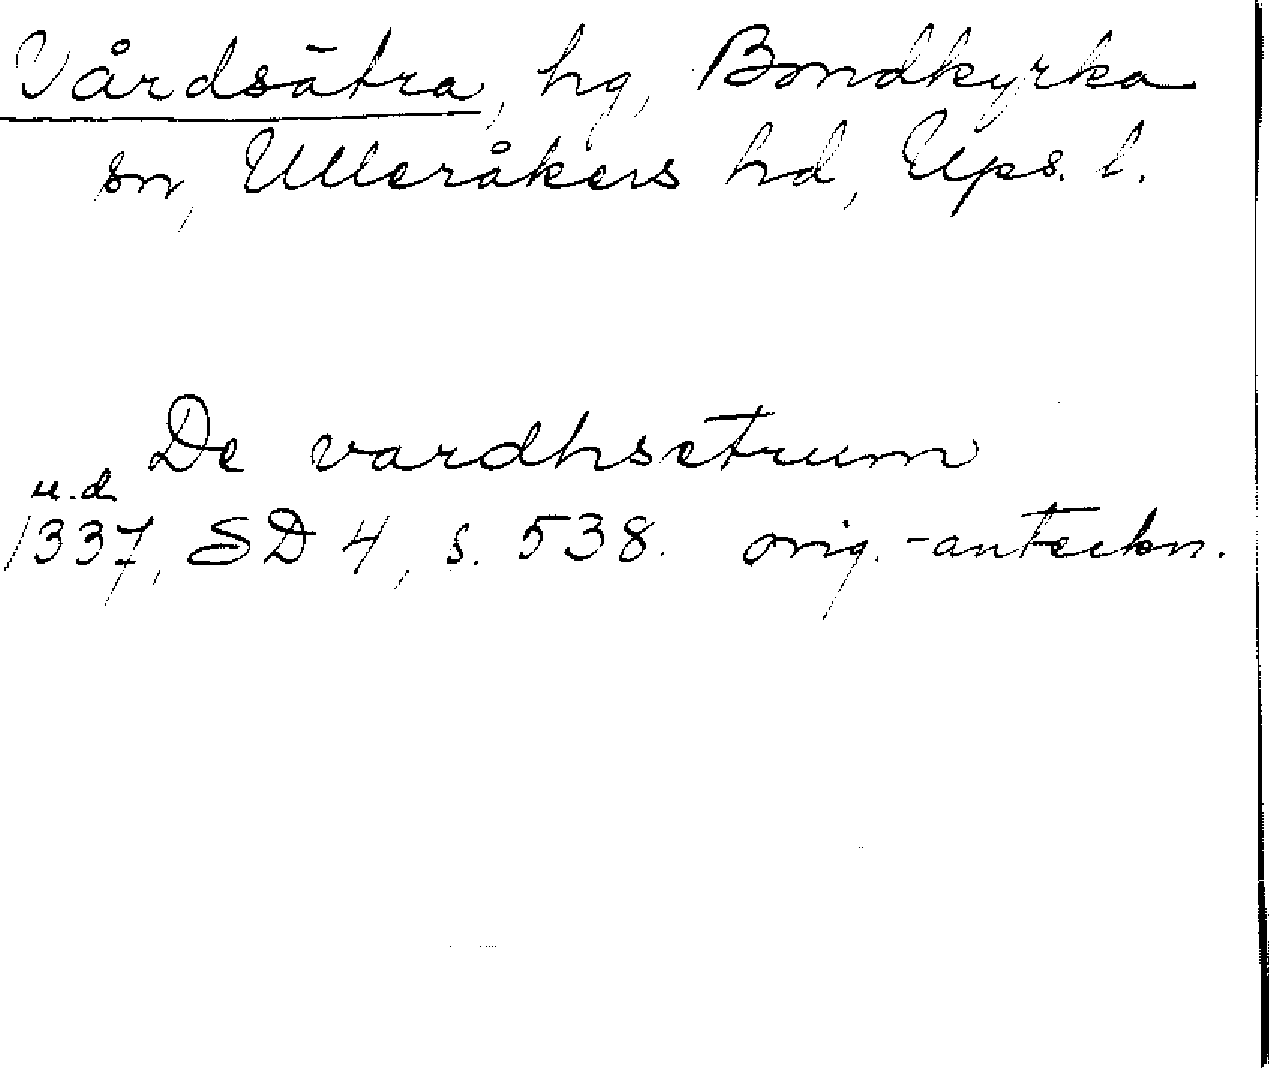 Vårdsätra, hg, Bondkyrka
sn, Ulleråkers hd, Ups. l.
De vardhsetrum
u.d
1337, SD 4, s. 538. orig.-anteckn.